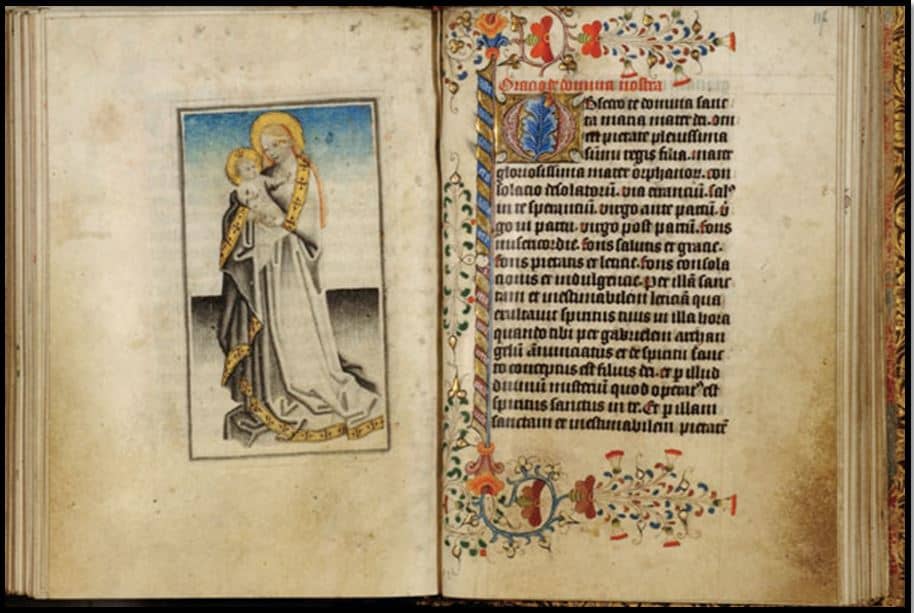 Oracio de domina nostra
Obsecro te domina sanc
ta maria mater dei. om
pietate plenissima
sūmi regis filia. mater
gloriosissima mater orphanoꝝ. con
solacio desolatorū. via errantiū. salꝰ
in te sperantiū. virgo ante partū. v̄
go in partu. virgo post partū. fons
misericordie. fons salutis et gracie.
fons pietatis et leticie. fons consola
tionis et indulgencie. Per illā sanc
tam et inestimabilem leticiā qua
exultauit spiritus tuus in illa hora
quando tibi per gabrielem archan
gelū annunciatus et de spiritu sanc
to conceptus est filius dei. et p illud
diuinū misterium quod operatꝰ est
spiritus sanctus in te. Et p illam
sanctam et inestimabilem pietatē